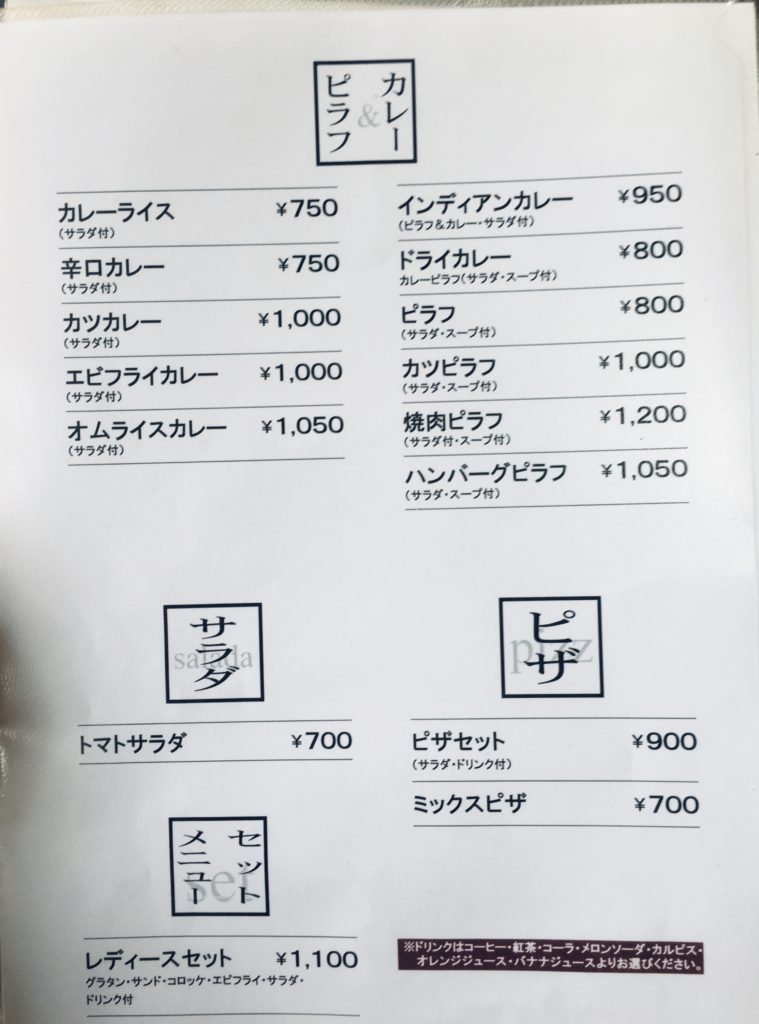 カレー
&
ピラフ
カレーライス ¥750
(サラダ付)
辛口カレー ¥750
(サラダ付)
カツカレー ¥1,000
(サラダ付)
エビフライカレー ¥1,000
(サラダ付)
オムライスカレー ¥1,050
(サラダ付)
インディアンカレー ¥950
(ピラフ&カレー・サラダ付)
ドライカレー ¥800
カレーピラフ(サラダ・スープ付)
ピラフ ¥800
(サラダ・スープ付)
カツピラフ ¥1,000
(サラダ・スープ付)
焼肉ピラフ ¥1,200
(サラダ付・スープ付)
ハンバーグピラフ ¥1,050
(サラダ・スープ付)
サラダ
salada
トマトサラダ ¥700
セット
メニュー
set
レディースセット ¥1,100
グラタン・サンド・コロッケ・エビフライ・サラダ・
ドリンク付
ピザ
pizz
ピザセット ¥900
(サラダ・ドリンク付)
ミックスピザ ¥700
※ドリンクはコーヒー・紅茶・コーラ・メロンソーダ・カルピス・
オレンジジュース・バナナジュースよりお選びください。